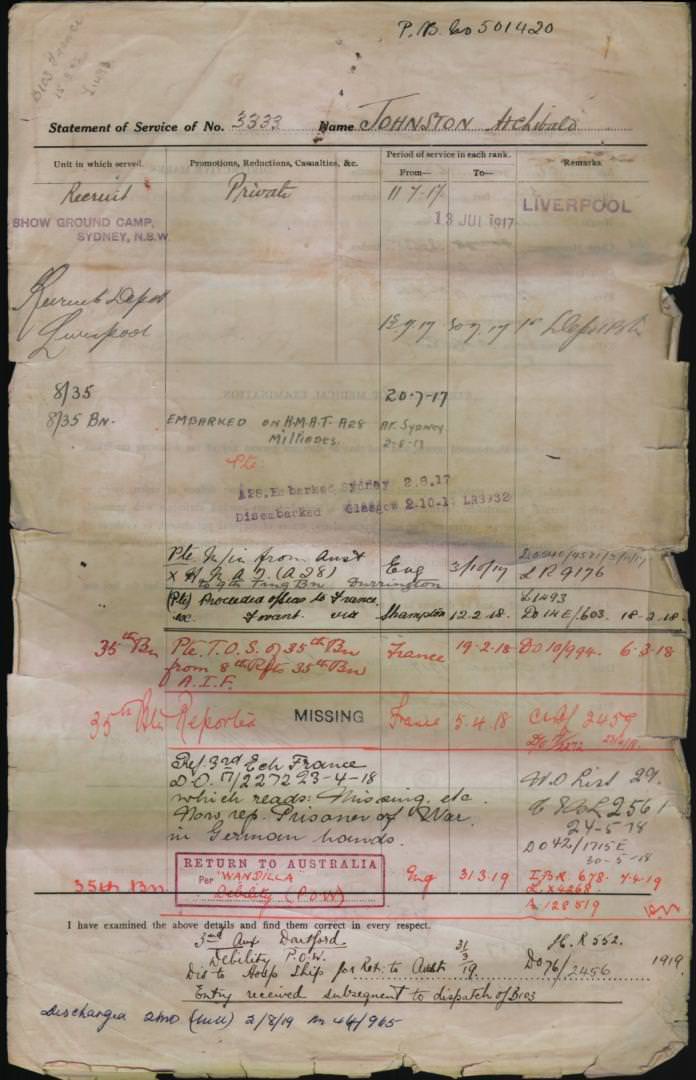 P.B. No 501420
B103 France
Statement of Service of No. 3333 Name JOHNSTON Archibald
Unit in which served. Promotions, Reductions, Casualties, &c. Period of service in each rank. Remarks.
From— To—
Recruit Private 11.7.17 LIVERPOOL
SHOW GROUND CAMP, 13 JUL 1917
SYDNEY, N.S.W.
Recruit Depot
Liverpool
8/35 20-7-17
8/35 BN. EMBARKED ON H.M.A.T. A28 AT. Sydney
MILTIADES.
Pte.
A28. Embarked Sydney 2.8.17
Disembarked Glasgow 2-10-1 LR9932
Pte M/in from Aust Eng 3/10/17
(A28) LR 9176
to 9th Trng Bn Durrington
(Pte) Proceeded o/seas to France L1493
via Shampton 12.2.18 DO 14E/603. 18-2-18
35th Bn Pte. T.O.S. of 35th Bn France 19-2-18 DO 10/994. 6-3-18
from 8th Rfts 35th Bn
A.I.F.
35th Bn Reported MISSING France 5.4.18 2459
Ref. 3rd Ech France
D.O. 17/2272 23-4-18
which reads: Missing. etc. W.O List
Now rep. Prisoner of War 2561
in German hands. 24-5-18
DO 42/1715E
30-5-18
RETURN TO AUSTRALIA
Per "WANDILLA" Eng 31.3.19 678. 7-4-19
35th Bn Debility (P.O.W) L x4268
A 128519
I have examined the above details and find them correct in every respect.
3rd Aux Dartford H.R 552.
Debility P.O.W. 31/3
Dis to Hosp Ship for Ret. to Aust 19. DO 76/2456 1919
Entry received subsequent to dispatch of B103
Discharged 2MD (MU) 2/8/19